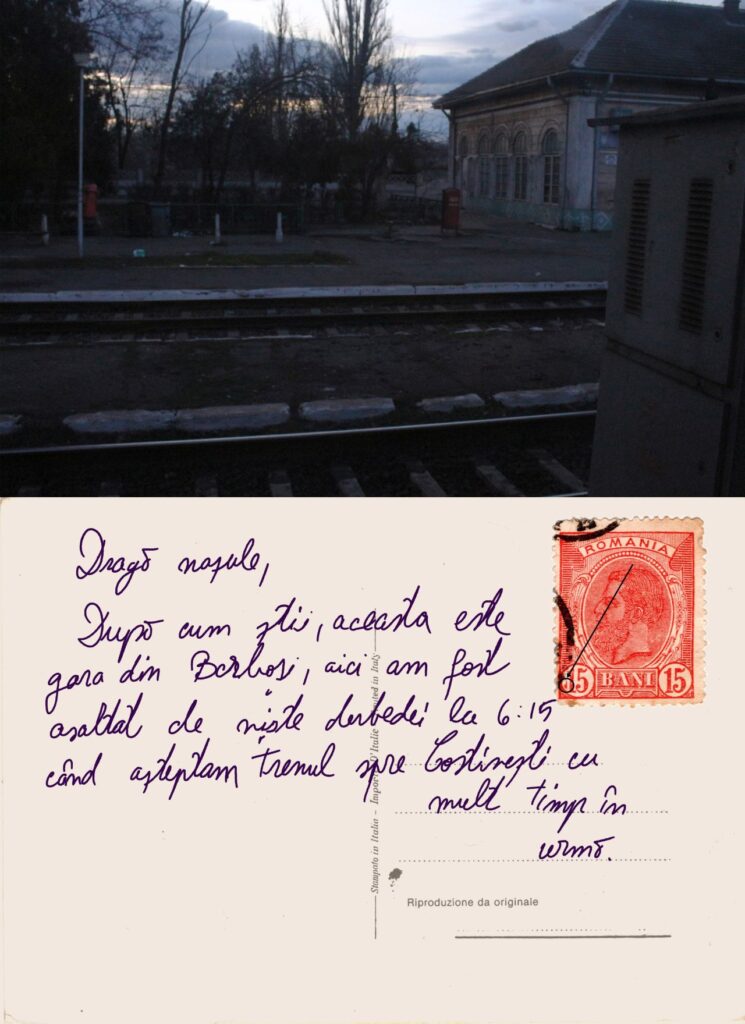 Dragă nașule,
ROMANIA
După cum știi, aceasta este
gara din Barboși, aici am fost
asaltat de niște derbedei la 6:15
15 BANI 15
când așteptam trenul spre Costinești cu
mult timp în
urmă.
Stampato in Italia - Importé d'Italie - Printed in Italy
Riproduzione da originale